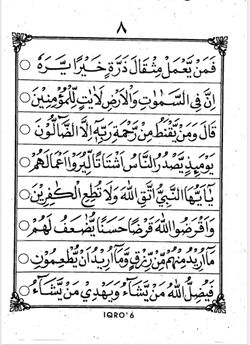 ٨
فَمَنْ يَّعْمَلْ مِثْقَالَ ذَرَّةٍ خَيْرًا يَّرَهُ
اِنَّ فِى السَّمٰوٰتِ وَالْاَرْضِ لَاٰيٰتٍ لِّلْمُؤْمِنِيْنَ
قَالَ وَمَنْ يَّقْنَطُ مِنْ رَّحْمَةِ رَبِّهٖ اِلَّا الضَّاۤلُّوْنَ
يَوْمَئِذٍ يَّصْدُرُ النَّاسُ اَشْتَاتًا لِّيُرَوْا اَعْمَالَهُمْ
يٰاَيُّهَا النَّبِيُّ اتَّقِ اللّٰهَ وَلَا تُطِعِ الْكٰفِرِيْنَ
وَاَقْرَضُوا اللّٰهَ قَرْضًا حَسَنًا يُّضٰعَفُ لَهُمْ
مَآ اُرِيْدُ مِنْهُمْ مِّنْ رِّزْقٍ وَّمَآ اُرِيْدُ اَنْ يُّطْعِمُوْنِ
فَيُضِلُّ اللّٰهُ مَنْ يَّشَاۤءُ وَيَهْدِيْ مَنْ يَّشَاۤءُ
IQRO'6